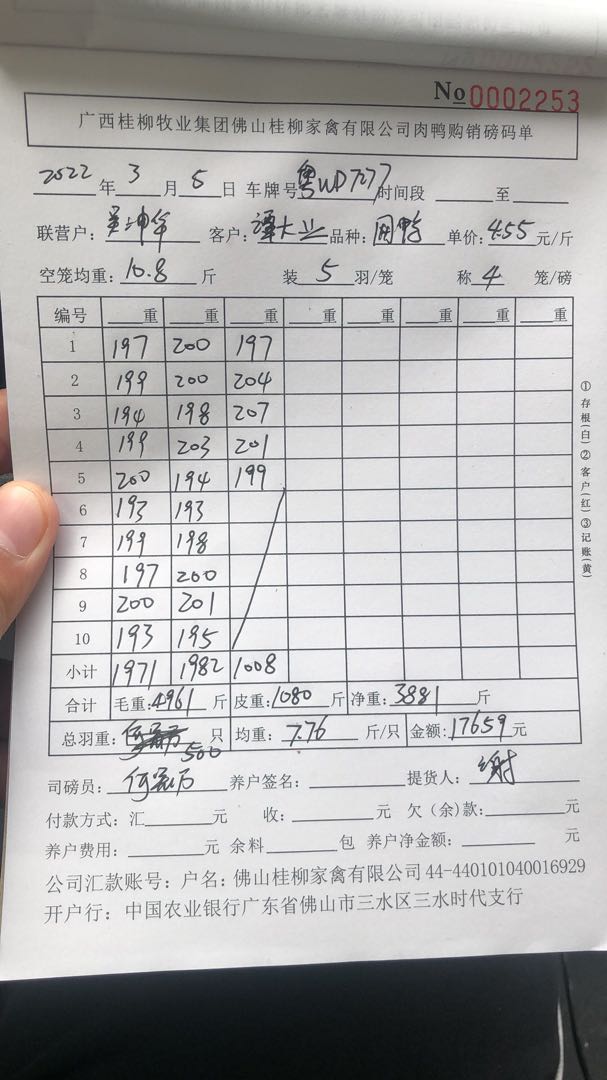 No 0002253
广西桂柳牧业集团佛山桂柳家禽有限公司肉鸭购销磅码单
2022 年 3 月 5 日 车牌号 粤WD7277 时间段 至
联营户: 吴坤华 客户: 谭大兴 品种: 鸭 单价: 4.55 元/斤
空笼均重: 10.8 斤 装 5 羽/笼 称 4 笼/磅
编号 重 重 重 重 重 重 重 重
1 197 200 197
2 199 200 204
3 194 198 207
4 199 203 201
5 200 194 199
6 193 193
7 199 198
8 197 200
9 200 201
10 193 195
小计 1971 1982 1008
合计 毛重: 4961 斤 皮重: 1080 斤 净重: 3881 斤
总羽重: 500 只 均重: 7.76 斤/只 金额: 17659 元
司磅员: 养户签名: 提货人: 谢
付款方式: 汇 元 收: 元 欠(余)款: 元
养户费用: 元 余料 包 养户净金额: 元
公司汇款账号: 户名: 佛山桂柳家禽有限公司 44-440101040016929
开户行: 中国农业银行广东省佛山市三水区三水时代支行
①存根(白)②客户(红)③记账(黄)